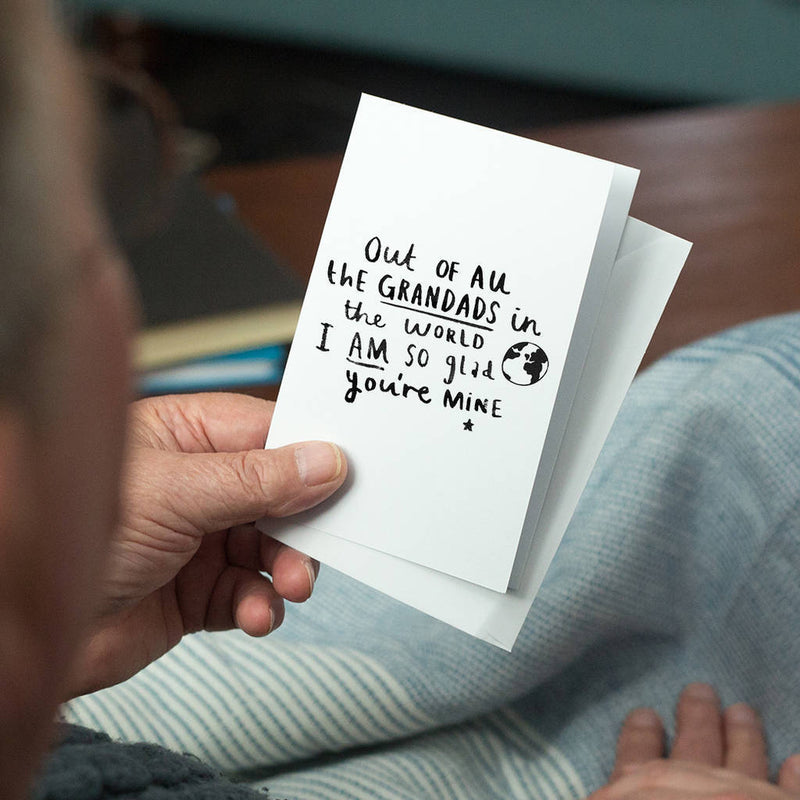 Out OF ALL
the GRANDADS in
the WORLD
I AM so glad
you're MINE